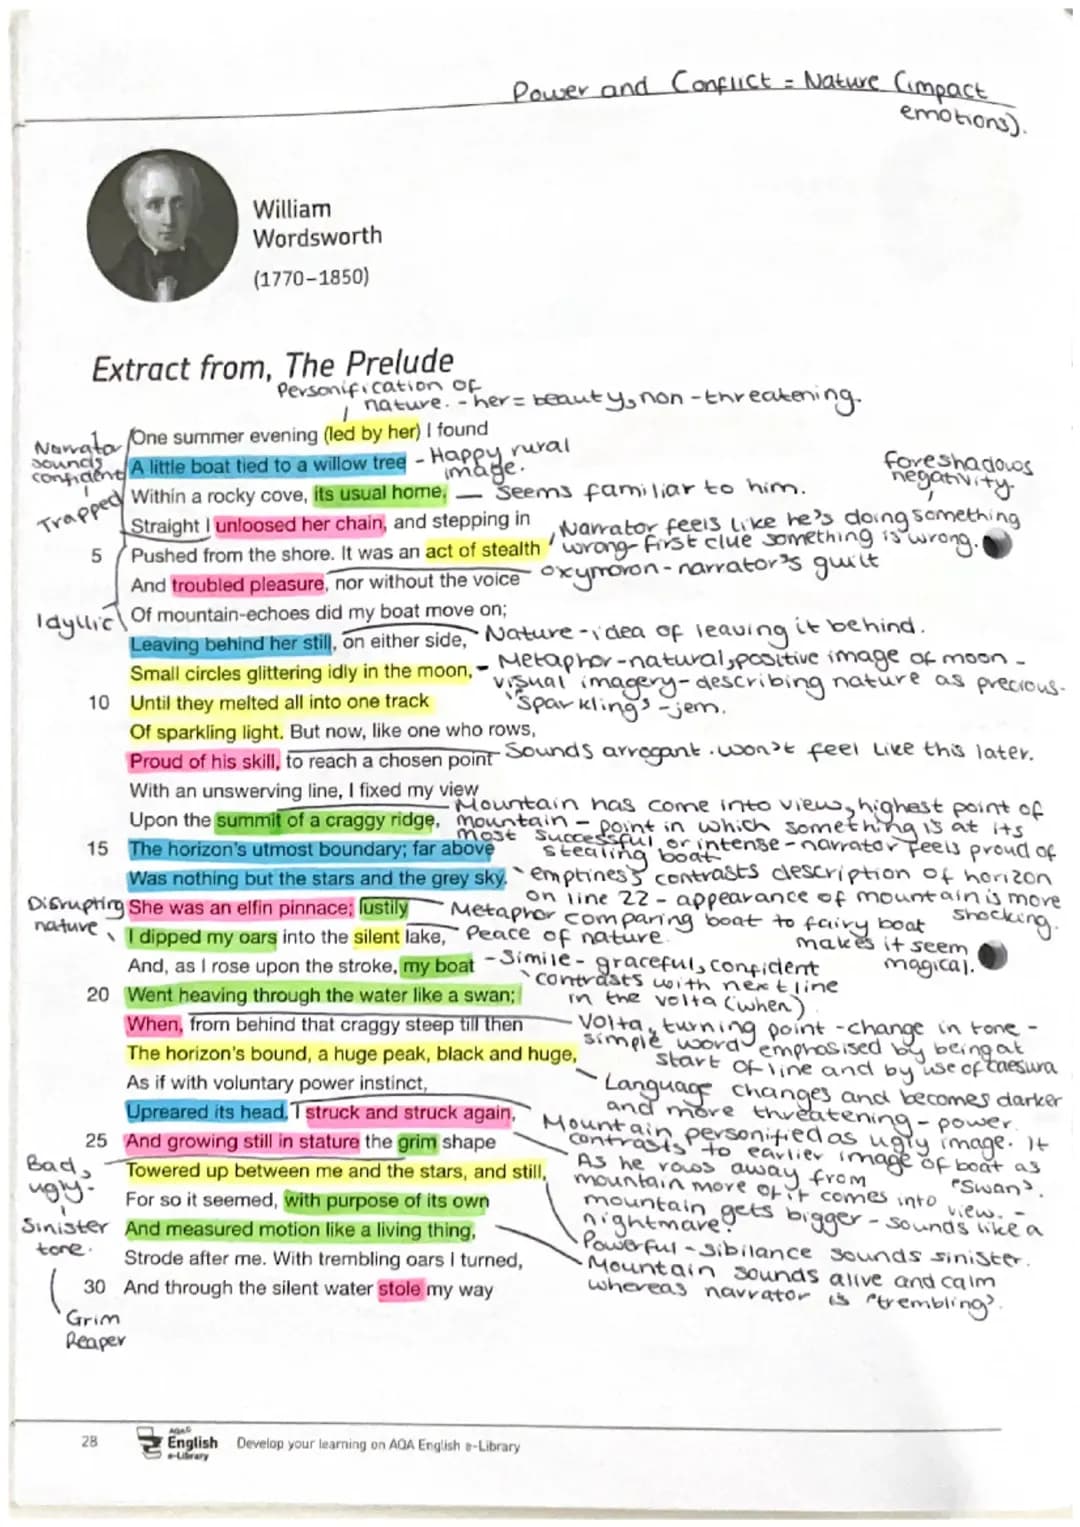 Power and Conflict = Nature (impact
emotions).
William
Wordsworth
(1770–1850)
Extract from, The Prelude
Personification of
nature. - her = beauty, non-threatening.
One summer evening (led by her) I found
A little boat tied to a willow tree
- Happy, rural
image.
Within a rocky cove, its usual home,
— Seems familiar to him.
Straight I unloosed her chain, and stepping in
5 Pushed from the shore. It was an act of stealth
And troubled pleasure, nor without the voice
Of mountain-echoes did my boat move on;
Leaving behind her still, on either side,
Small circles glittering idly in the moon,
10 Until they melted all into one track
Of sparkling light. But now, like one who rows,
Proud of his skill, to reach a chosen point
With an unswerving line, I fixed my view
Upon the summit of a craggy ridge,
15 The horizon's utmost boundary; far above
Was nothing but the stars and the grey sky.
She was an elfin pinnace; lustily
I dipped my oars into the silent lake,
And, as I rose upon the stroke, my boat
20 Went heaving through the water like a swan;
When, from behind that craggy steep till then
The horizon's bound, a huge peak, black and huge,
As if with voluntary power instinct,
Upreared its head. I struck and struck again,
25 And growing still in stature the grim shape
Towered up between me and the stars, and still,
For so it seemed, with purpose of its own
And measured motion like a living thing,
Strode after me. With trembling oars I turned,
30 And through the silent water stole my way
Narrator
sounds
confident
Trapped
Idyllic
Disrupting
nature
Bad,
ugly.
Sinister
tone.
Grim
Reaper
foreshadows
negativity.
Narrator feels like he's doing something
wrong - first clue something is wrong.
oxymoron - narrator's guilt
Nature - idea of leaving it behind.
Metaphor - natural, positive image of moon -
visual imagery - describing nature as precious -
'sparkling' - jem.
Sounds arrogant. won't feel like this later.
Mountain has come into view, highest point of
mountain - point in which something is at its
most successful or intense - narrator feels proud of
stealing boat
emptines's contrasts description of horizon
on line 22 - appearance of mountain is more
shocking.
Metaphor comparing boat to fairy boat
makes it seem
magical.
Peace of nature.
- Simile - graceful, confident
contrasts with next line
in the volta (when)
Volta, turning point - change in tone -
simple word emphasised by being at
start of line and by use of caesura
Language changes and becomes darker
and more threatening - power.
Mountain personified as ugly image. It
contrasts to earlier image of boat as
"Swan".
As he rows away from
mountain more of it comes into view. -
mountain gets bigger - sounds like a
nightmare!
Powerful - Sibilance sounds sinister.
Mountain sounds alive and calm
whereas narrator is "trembling".
28
AQA
English
e-Library
Develop your learning on AQA English e-Library